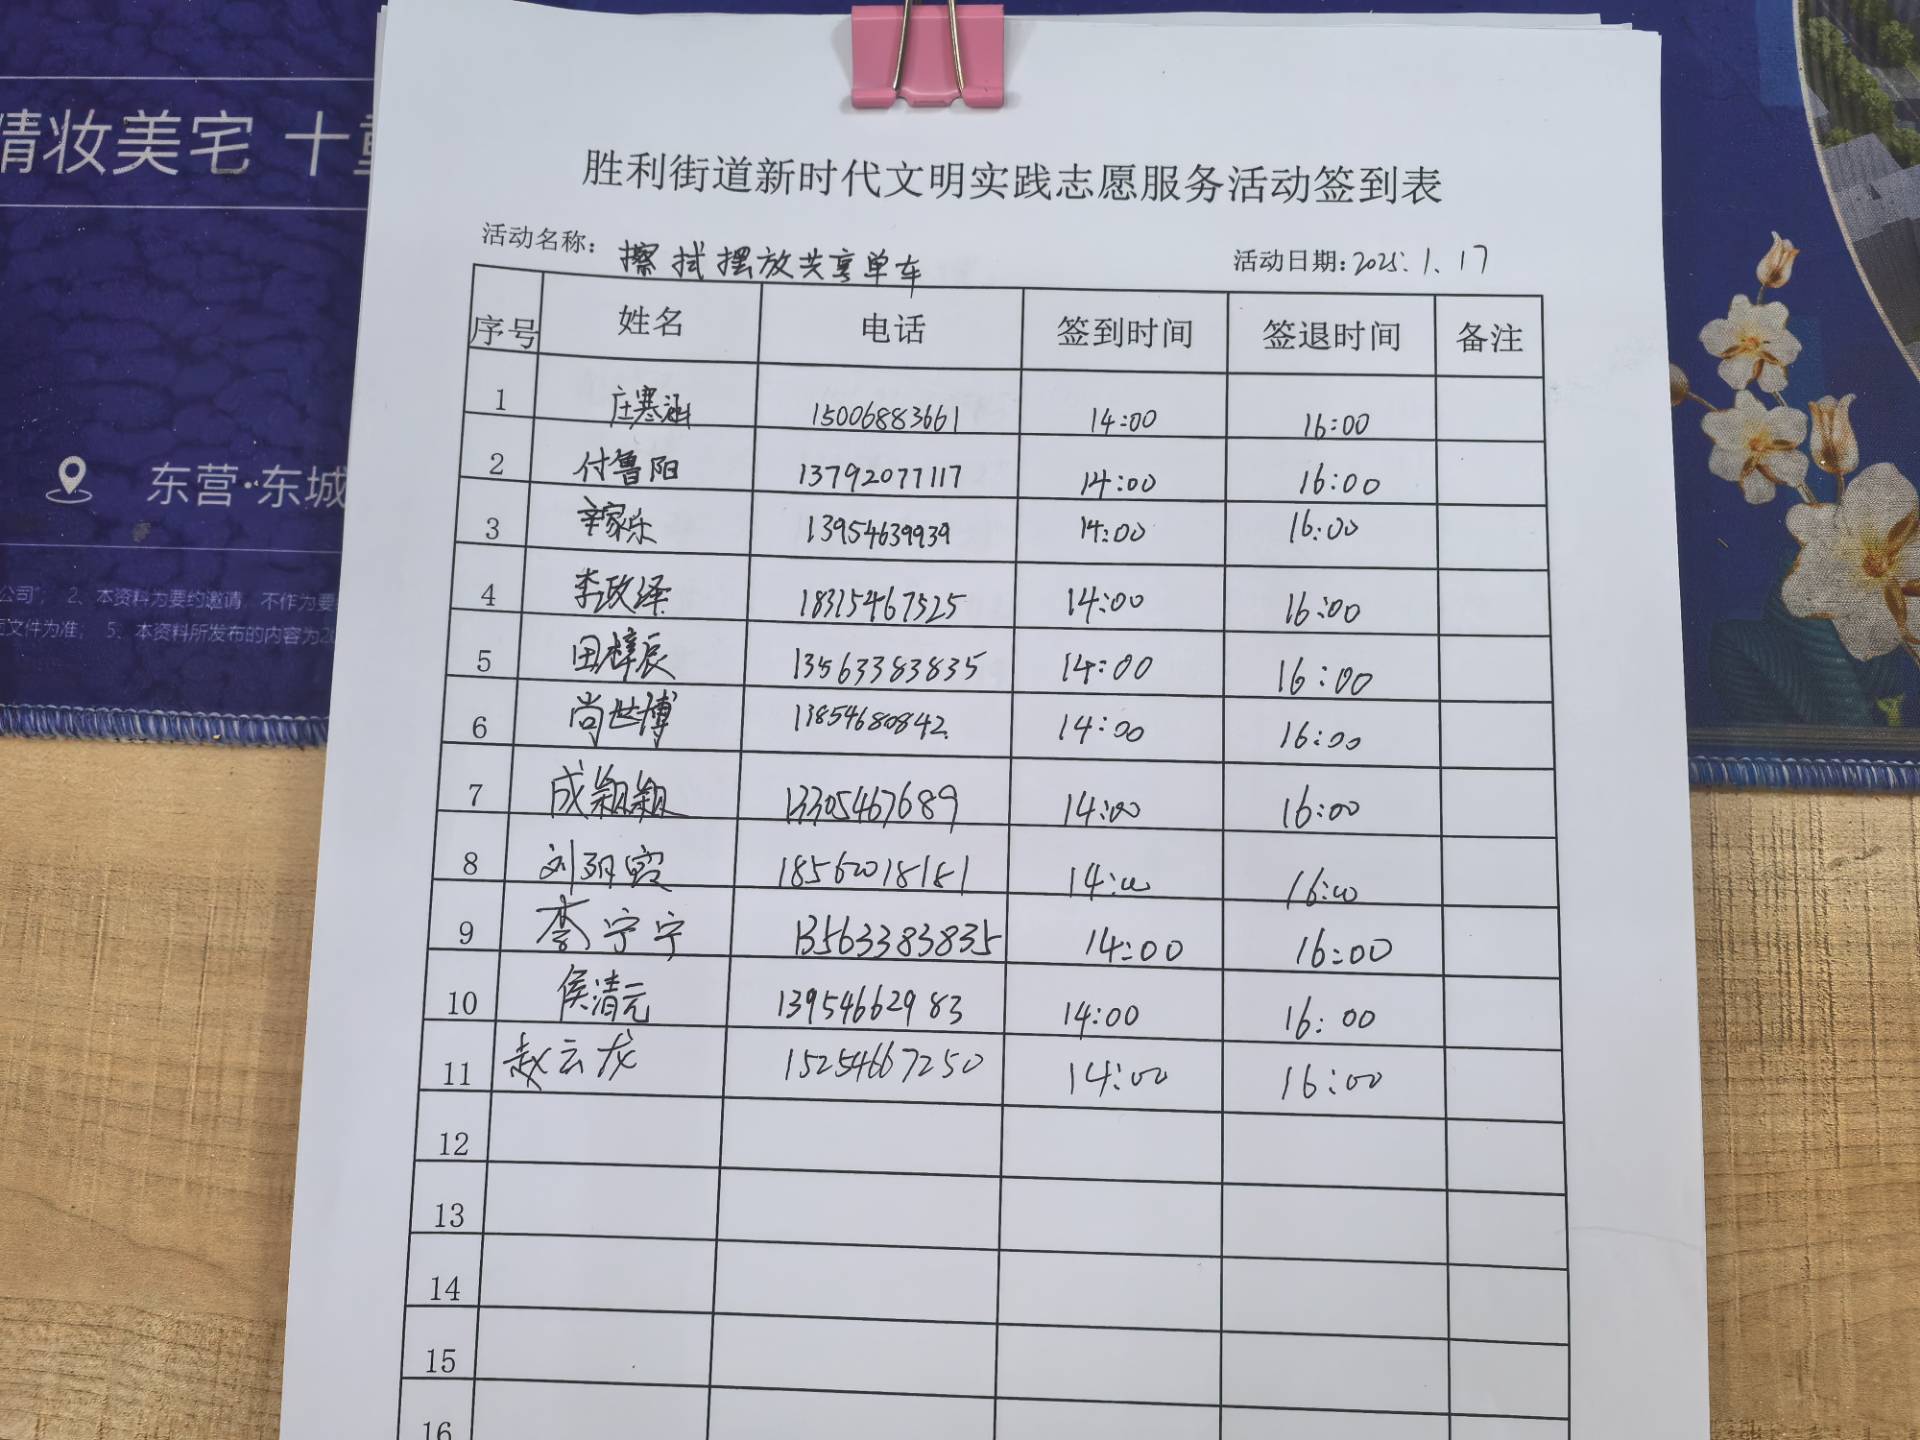 精妆美宅 十重
东营·东城
公司"; 2、本资料为要约邀请，不作为要
文件为准； 5、本资料所发布的内容为20
胜利街道新时代文明实践志愿服务活动签到表
活动名称：擦拭摆放共享单车 活动日期：2025.1.17
序号 姓名 电话 签到时间 签退时间 备注
1 庄寒涵 15006883661 14:00 16:00
2 付鲁阳 13792077117 14:00 16:00
3 辛家乐 13954639939 14:00 16:00
4 李政泽 18315467525 14:00 16:00
5 田梓辰 13563383835 14:00 16:00
6 尚世博 13854680842 14:00 16:00
7 成颖颖 13305467689 14:00 16:00
8 刘玥霞 18562018181 14:00 16:00
9 李宁宁 13563383835 14:00 16:00
10 侯清元 13954662983 14:00 16:00
11 赵云龙 15254667250 14:00 16:00
12
13
14
15
16